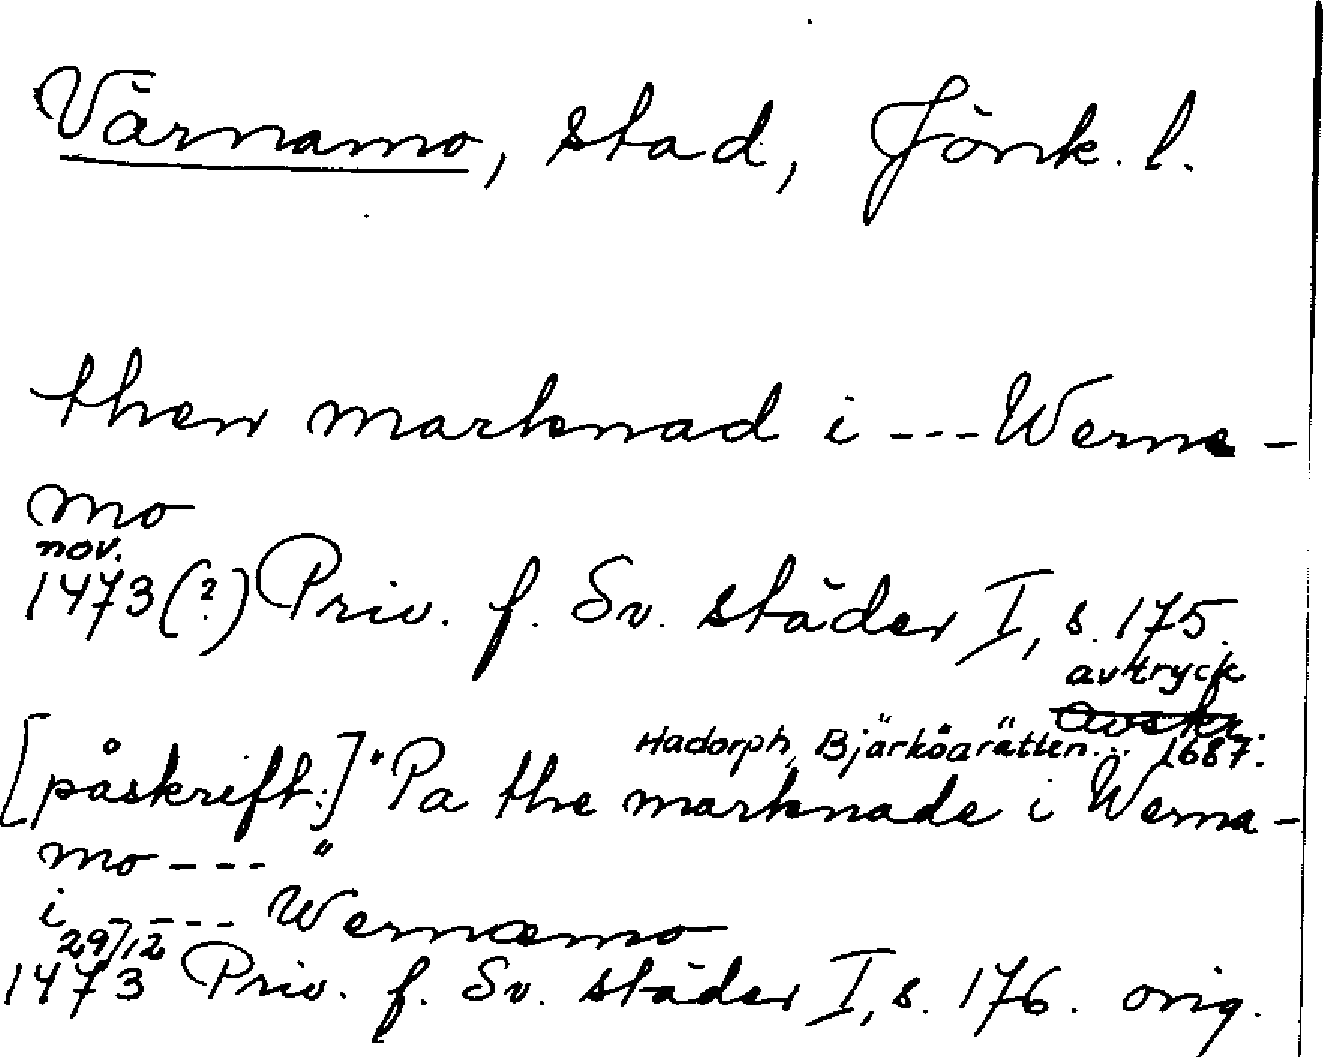 Värnamo, stad, Jönk. l.
then marknad i --- Werne-
mo
nov.
1473(?) Priv. f. Sv. städer I, s. 175.
avtryck
Hadorph, Bjärköarätten... 1687.
[påskrift:] "Pa the marknade i Werna-
mo --- "
i ---- Wernæmo
29/12
1473 Priv. f. Sv. städer I, s. 176. orig.